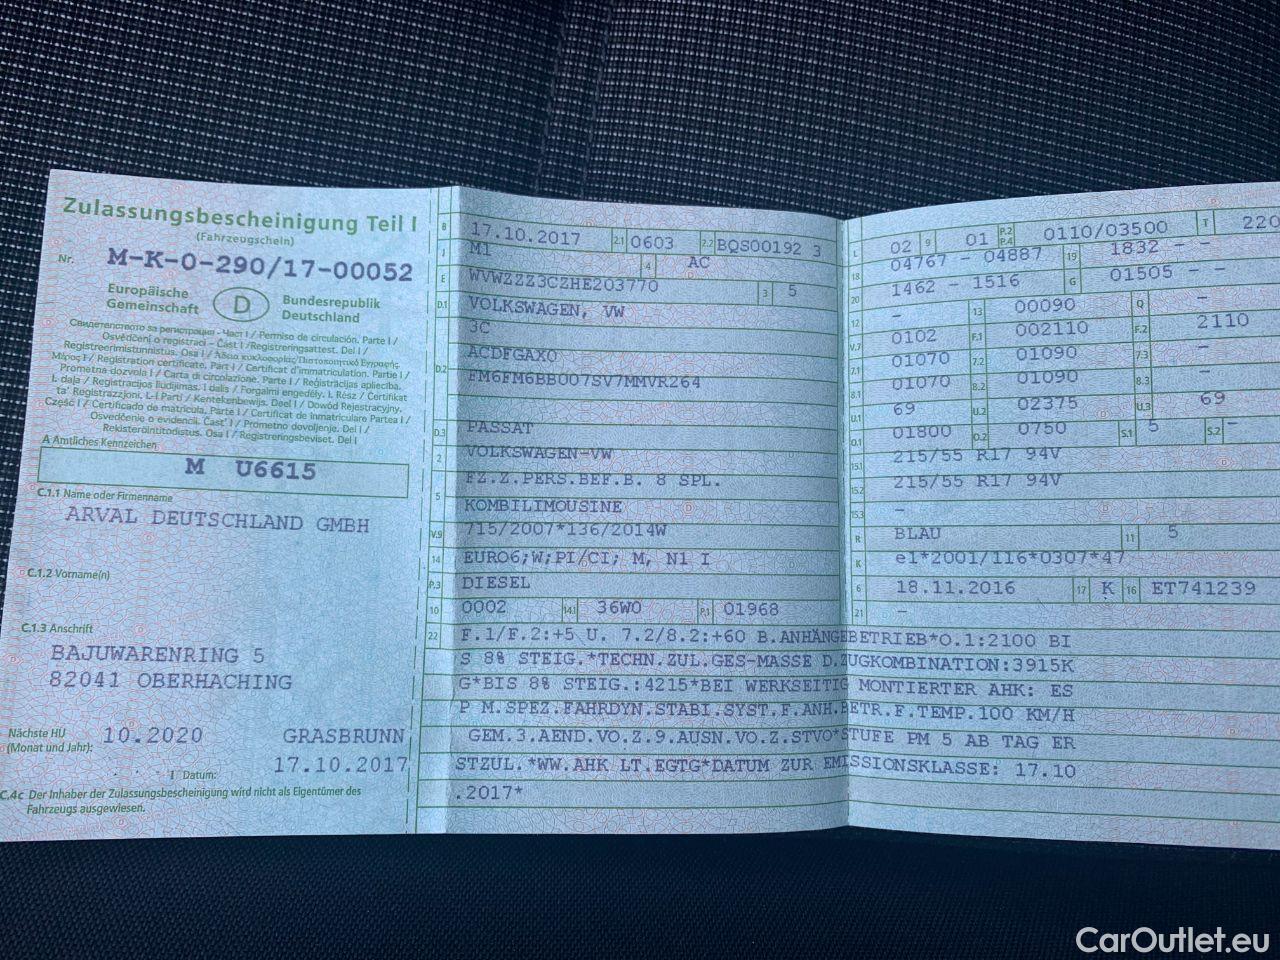 Zulassungsbescheinigung Teil I
(Fahrzeugschein)
Nr. M-K-O-290/17-00052
Europäische Gemeinschaft
D
Bundesrepublik Deutschland
Свидетелството за регистрация - Част I / Permiso de circulación. Parte I /
Osvědčení o registraci - Část I / Registreringsattest. Del I /
Registreerimistunnistus. Osa I / Άδεια κυκλοφορίας/Πιστοποιητικό Εγγραφής.
Μέρος I / Registration certificate. Part I / Certificat d'immatriculation. Partie I /
Prometna dozvola I / Carta di circolazione. Parte I / Reģistrācijas apliecība.
I. daļa / Registracijos liudijimas. I dalis / Forgalmi engedély. I. Rész / Ċertifikat
ta' Reġistrazzjoni. L-I Parti / Kentekenbewijs. Deel I / Dowód Rejestracyjny.
Część I / Certificado de matrícula. Parte I / Certificat de înmatriculare Partea I /
Osvedčenie o evidencii. Časť I / Prometno dovoljenje. Del I /
Rekisteröintitodistus. Osa I / Registreringsbeviset. Del I
A Amtliches Kennzeichen
M U6615
C.1.1 Name oder Firmenname
ARVAL DEUTSCHLAND GMBH
C.1.2 Vorname(n)
C.1.3 Anschrift
BAJUWARENRING 5
82041 OBERHACHING
Nächste HU (Monat und Jahr): 10.2020
GRASBRUNN
I Datum: 17.10.2017
C.4c Der Inhaber der Zulassungsbescheinigung wird nicht als Eigentümer des
Fahrzeugs ausgewiesen.
B 17.10.2017 2.1 0603 2.2 BQS00192 3
J M1 4 AC
E WVWZZZ3CZHE203770 3 5
D.1 VOLKSWAGEN, VW
3C
D.2 ACDFGAX0
FM6FM6BB007SV7MMVR264
D.3 PASSAT
2 VOLKSWAGEN-VW
FZ.Z.PERS.BEF.B. 8 SPL.
5 KOMBILIMOUSINE
V.9 715/2007*136/2014W
14 EURO6;W;PI/CI; M, N1 I
P.3 DIESEL
10 0002 14.1 36W0 P.1 01968
L 02 9 01 P.2 P.4 0110/03500 T 220
18 04767 - 04887 19 1832 - -
20 1462 - 1516 G 01505 - -
12 - 13 00090 Q -
V.7 0102 F.1 002110 F.2 2110
7.1 01070 7.2 01090 7.3 -
8.1 01070 8.2 01090 8.3 -
U.1 69 U.2 02375 U.3 69
O.1 01800 O.2 0750 S.1 5 S.2 -
15.1 215/55 R17 94V
15.2 215/55 R17 94V
15.3 -
R BLAU 11 5
K e1*2001/116*0307*47
6 18.11.2016 17 K 16 ET741239
21 -
22 F.1/F.2:+5 U. 7.2/8.2:+60 B.ANHÄNGEBETRIEB*O.1:2100 BI
S 8% STEIG.*TECHN.ZUL.GES-MASSE D.ZUGKOMBINATION:3915K
G*BIS 8% STEIG.:4215*BEI WERKSEITIG MONTIERTER AHK: ES
P M.SPEZ.FAHRDYN.STABI.SYST.F.ANH.BETR.F.TEMP.100 KM/H
GEM.3.AEND.VO.Z.9.AUSN.VO.Z.STVO*STUFE PM 5 AB TAG ER
STZUL.*WW.AHK LT.EGTG*DATUM ZUR EMISSIONSKLASSE: 17.10
.2017*
CarOutlet.eu